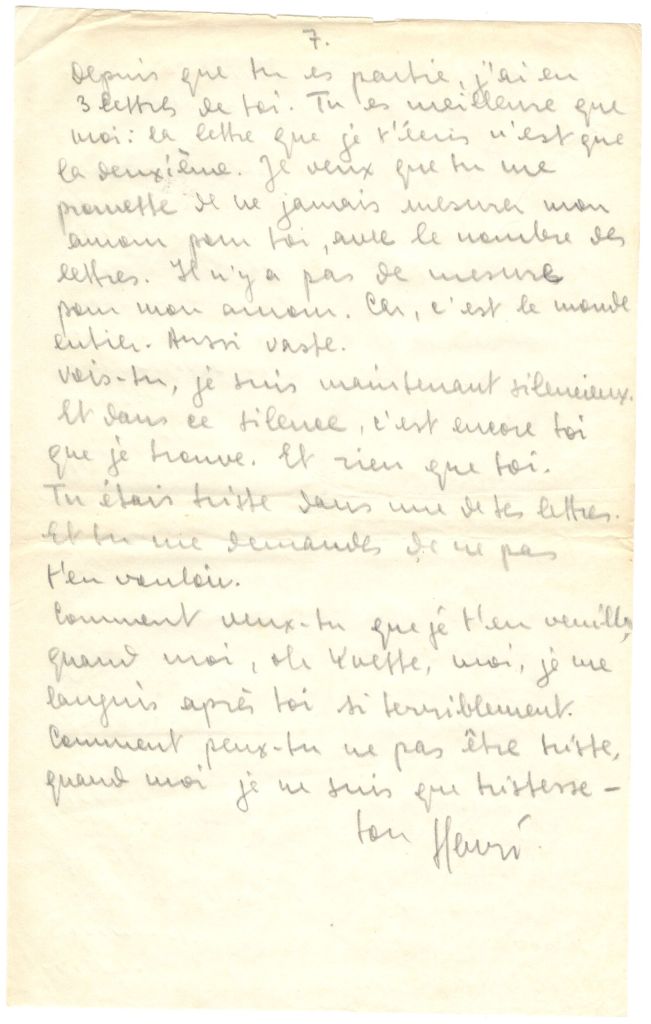 7.
Depuis que tu es partie, j'ai eu
3 lettres de toi. Tu es meilleure que
moi: la lettre que je t'écris n'est que
la deuxième. Je veux que tu me
promette de ne jamais mesurer mon
amour pour toi, avec le nombre des
lettres. Il n'y a pas de mesure
pour mon amour. Car, c'est le monde
entier. Aussi vaste.
Vois-tu, je suis maintenant silencieux.
Et dans ce silence, c'est encore toi
que je trouve. Et rien que toi.
Tu étais triste dans une de tes lettres.
Et tu me demandes de ne pas
t'en vouloir.
Comment veux-tu que je t'en veuille,
quand moi, oh Yvette, moi, je me
languis après toi si terriblement.
Comment peux-tu ne pas être triste,
quand moi je ne suis que tristesse –
ton Henri